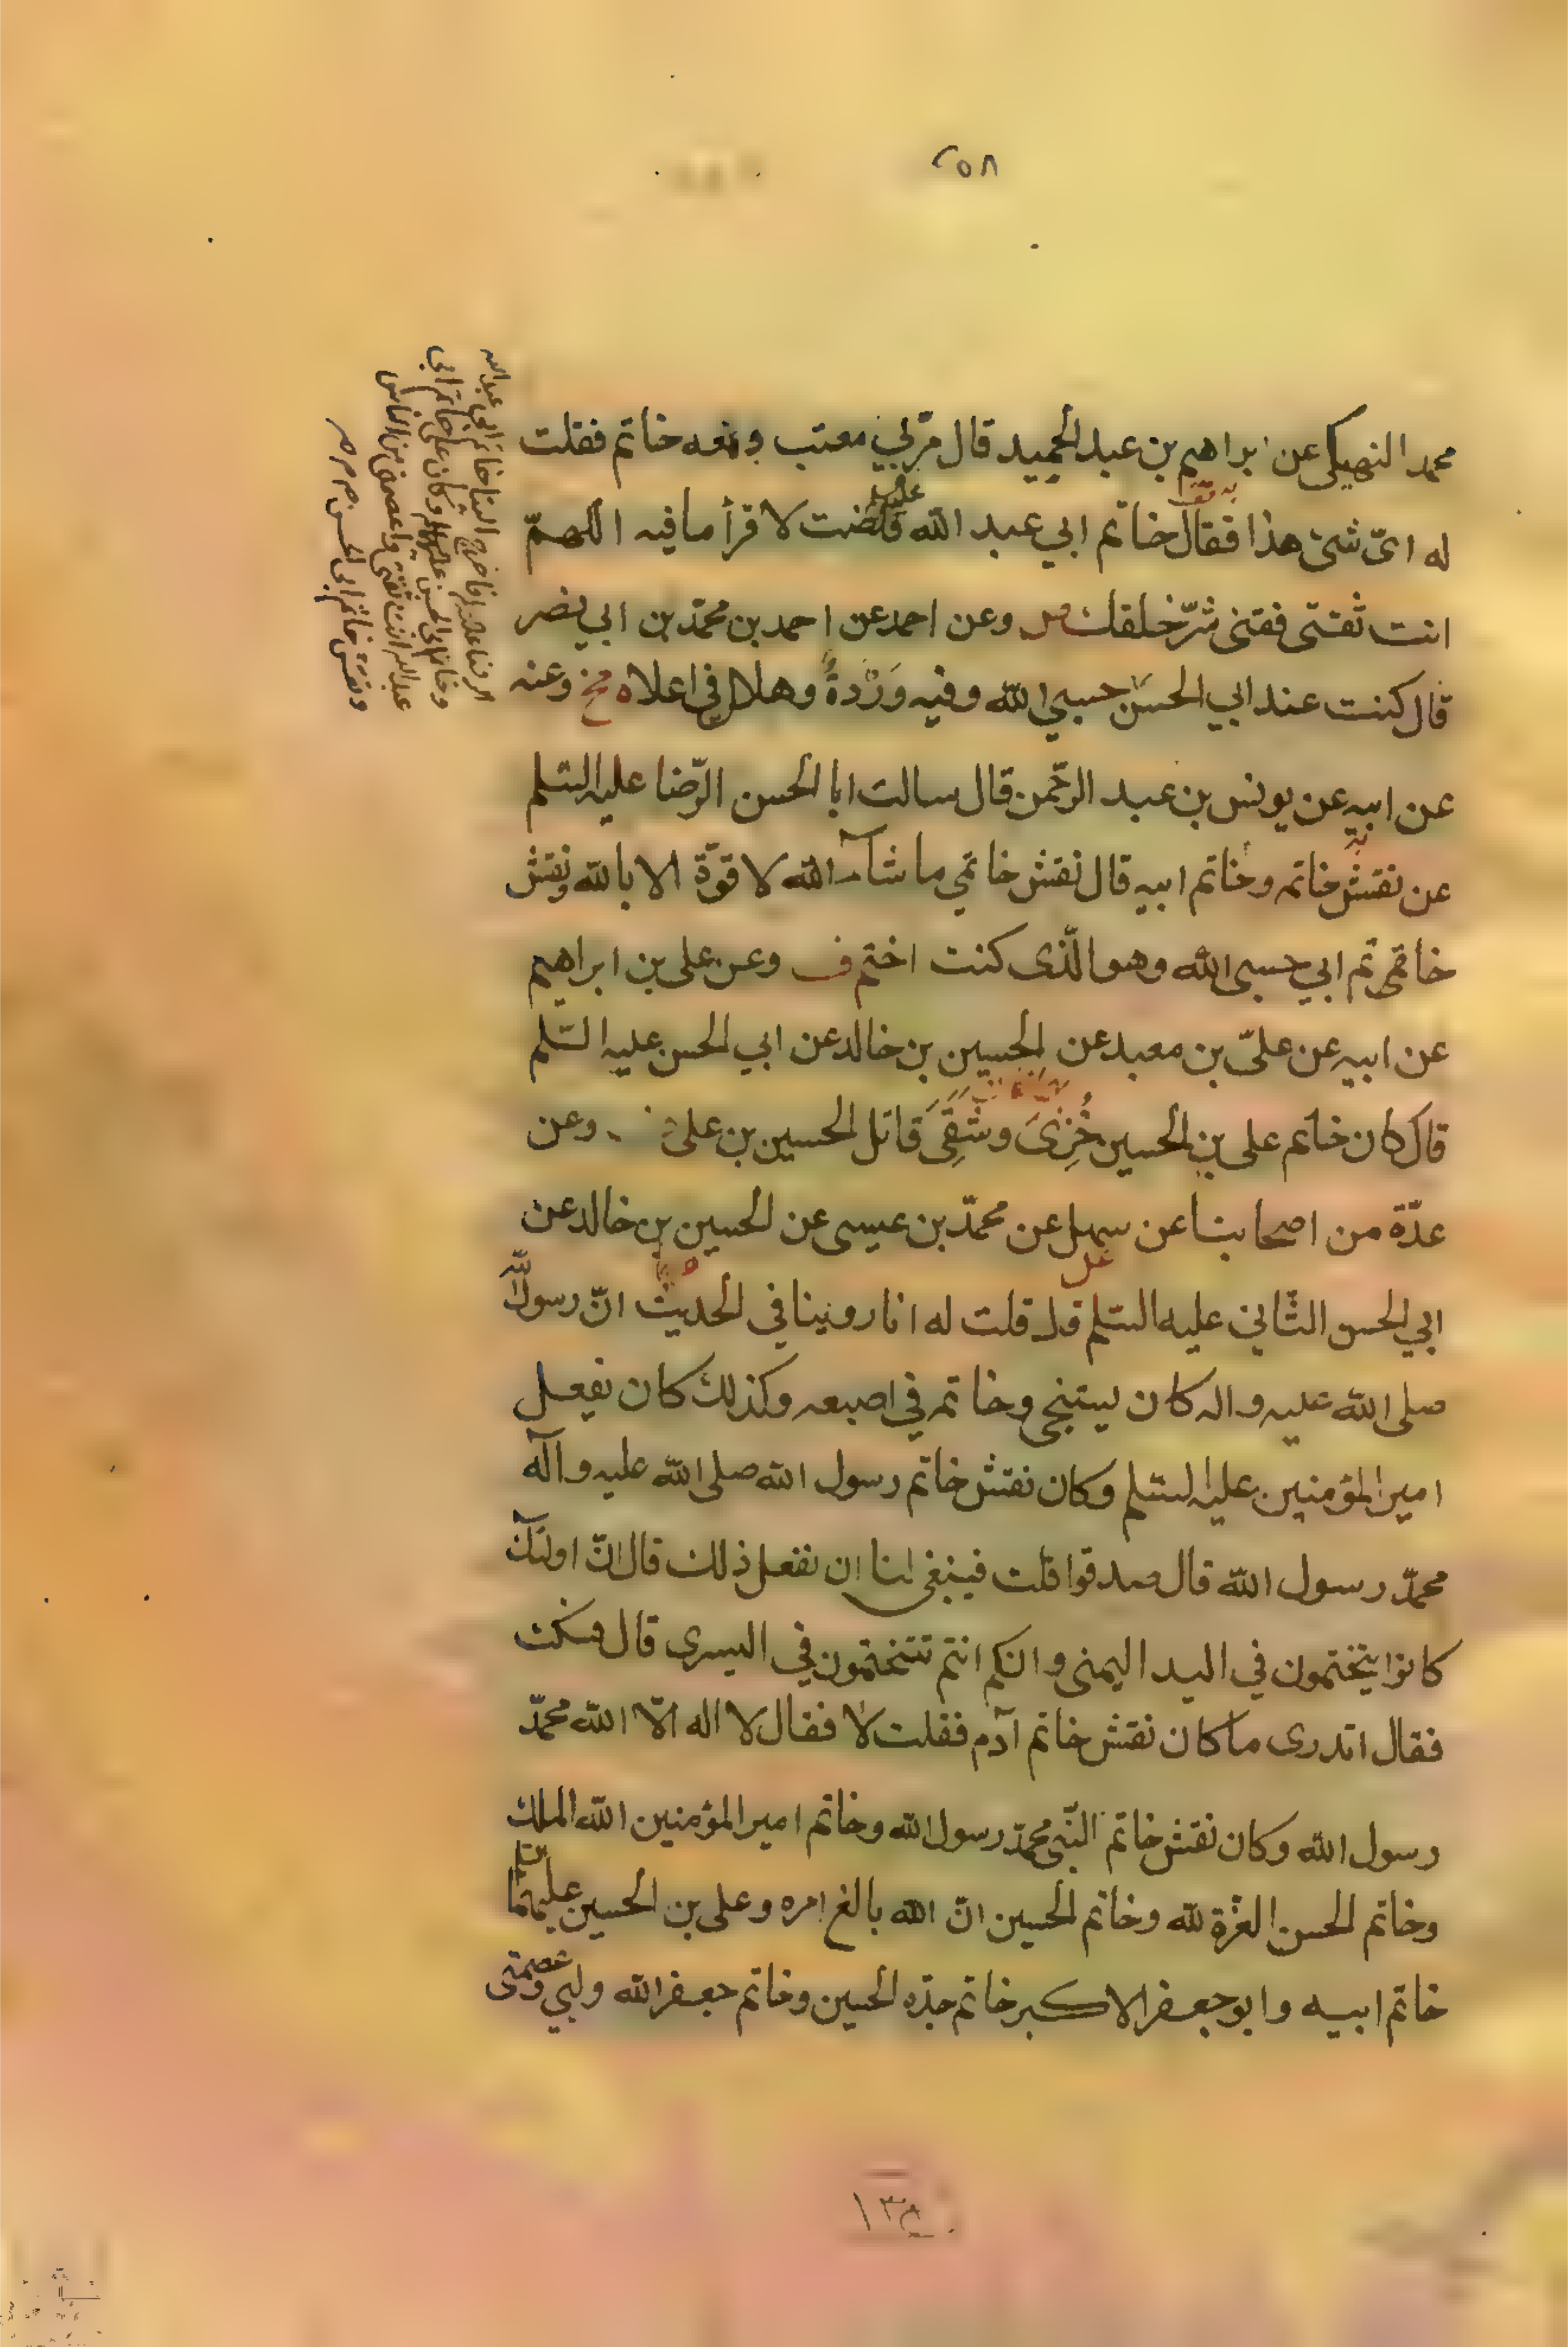 ٢٥٨
محمد النهيكى عن ابراهيم بن عبد الحميد قال مرّ بي معتب ومعه خاتم فقلت
له اىّ شئ هذا فقال خاتم ابي عبد الله لا قرأ ما فيه اللهمّ
انت ثقتى فقنى شرّ خلقك وعن احمد عن احمد بن محمّد بن ابي نصر
قال كنت عند ابي الحسن حسبي الله وفيه وَرْدةٌ وهلال في اعلاه وعنه
عن ابيه عن يونس بن عبد الرحّمن قال سالت ابا الحسن الرّضا عليه السّلم
عن نقش خاتمه وخاتم ابيه قال نقش خاتمي ما شآء الله لا قوّة الا بالله ونقش
خاتم ابي حسبى الله وهو الّذى كنت اختم وعن على بن ابراهيم
عن ابيه عن علىّ بن معبد عن الحسين بن خالد عن ابي الحسن عليه السّلم
قال كان خاتم على بن الحسين خُزِىَ وشَقِىَ قاتل الحسين بن على وعن
عدّة من اصحابنا عن سهل عن محمّد بن عيسى عن الحسين بن خالد عن
ابي الحسن الثّاني عليه السّلم قال قلت له انا روينا في الحديث انّ رسول الله
صلى الله عليه واله كان يستنجى وخاتمه في اصبعه وكذلك كان يفعل
امير المؤمنين عليه السّلم وكان نقش خاتم رسول الله صلى الله عليه وآله
محمّد رسول الله قال صدقوا قلت فينبغى لنا ان نفعل ذلك قال انّ اولئك
كانوا يتختمون في اليد اليمنى وانكم انتم تتختمون في اليسرى قال فسكت
فقال اتدرى ما كان نقش خاتم آدم فقلت لا فقال لا اله الّا الله محمّد
رسول الله وكان نقش خاتم النّبى محمّد رسول الله وخاتم امير المؤمنين الله الملك
وخاتم الحسن العزّة لله وخاتم الحسين انّ الله بالغ امره وعلى بن الحسين عليهما السّلم
خاتم ابيه وابو جعفر الاكبر خاتم جدّه الحسين وخاتم جعفر الله وليي وعصمتى
الرضا عليه السلم فاخرج الينا خاتم ابى عبد الله
وخاتم ابى الحسن عليهما السلم وكان على خاتم ابى
عبد الله انت ثقتى واعصمنى من الناس
ونقش خاتم ابى الحسن